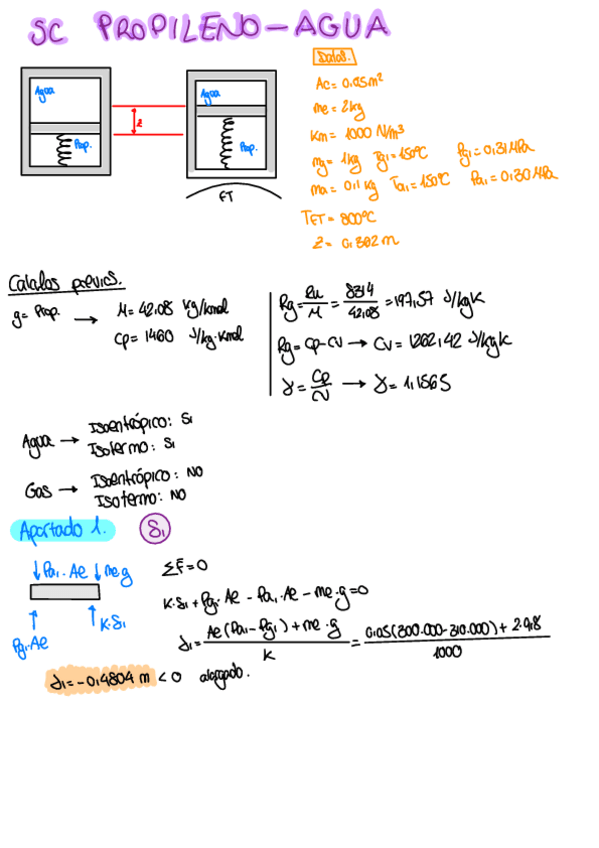 SC PROPILENO-AGUA
Datos.
Agua
Prop.
z
Agua
Prop.
FT
Ac = 0,05m²
me = 2kg
Km = 1000 N/m³
mg = 1kg Tg1 = 150ºC Pg1 = 0,31MPa
ma = 0,1 kg Ta1 = 150ºC Pa1 = 0,30MPa
TFT = 800ºC
Z = 0,302 m
Calculos previos.
g = Prop. → M = 42,08 kg/kmol
Cp = 1460 J/kg·Kmol
Rg = Ru/M = 8314/42,08 = 197,57 J/kgK
Rg = Cp - CV → CV = 1262,42 J/kgK
γ = Cp/CV → γ = 1,1565
Agua → Isoentrópico: Si
Isotermo: Si
Gas → Isoentrópico: NO
Isotermo: NO
Apartado 1. S1
↓Pa1·Ae ↓me·g
↑ ↑K·S1
Pg1·Ae
ΣF = 0
K·S1 + Pg1·Ae - Pa1·Ae - me·g = 0
S1 = Ae(Pa1 - Pg1) + me·g / K = 0,05(300.000 - 310.000) + 2·9,8 / 1000
S1 = -0,4804 m < 0 alargado.